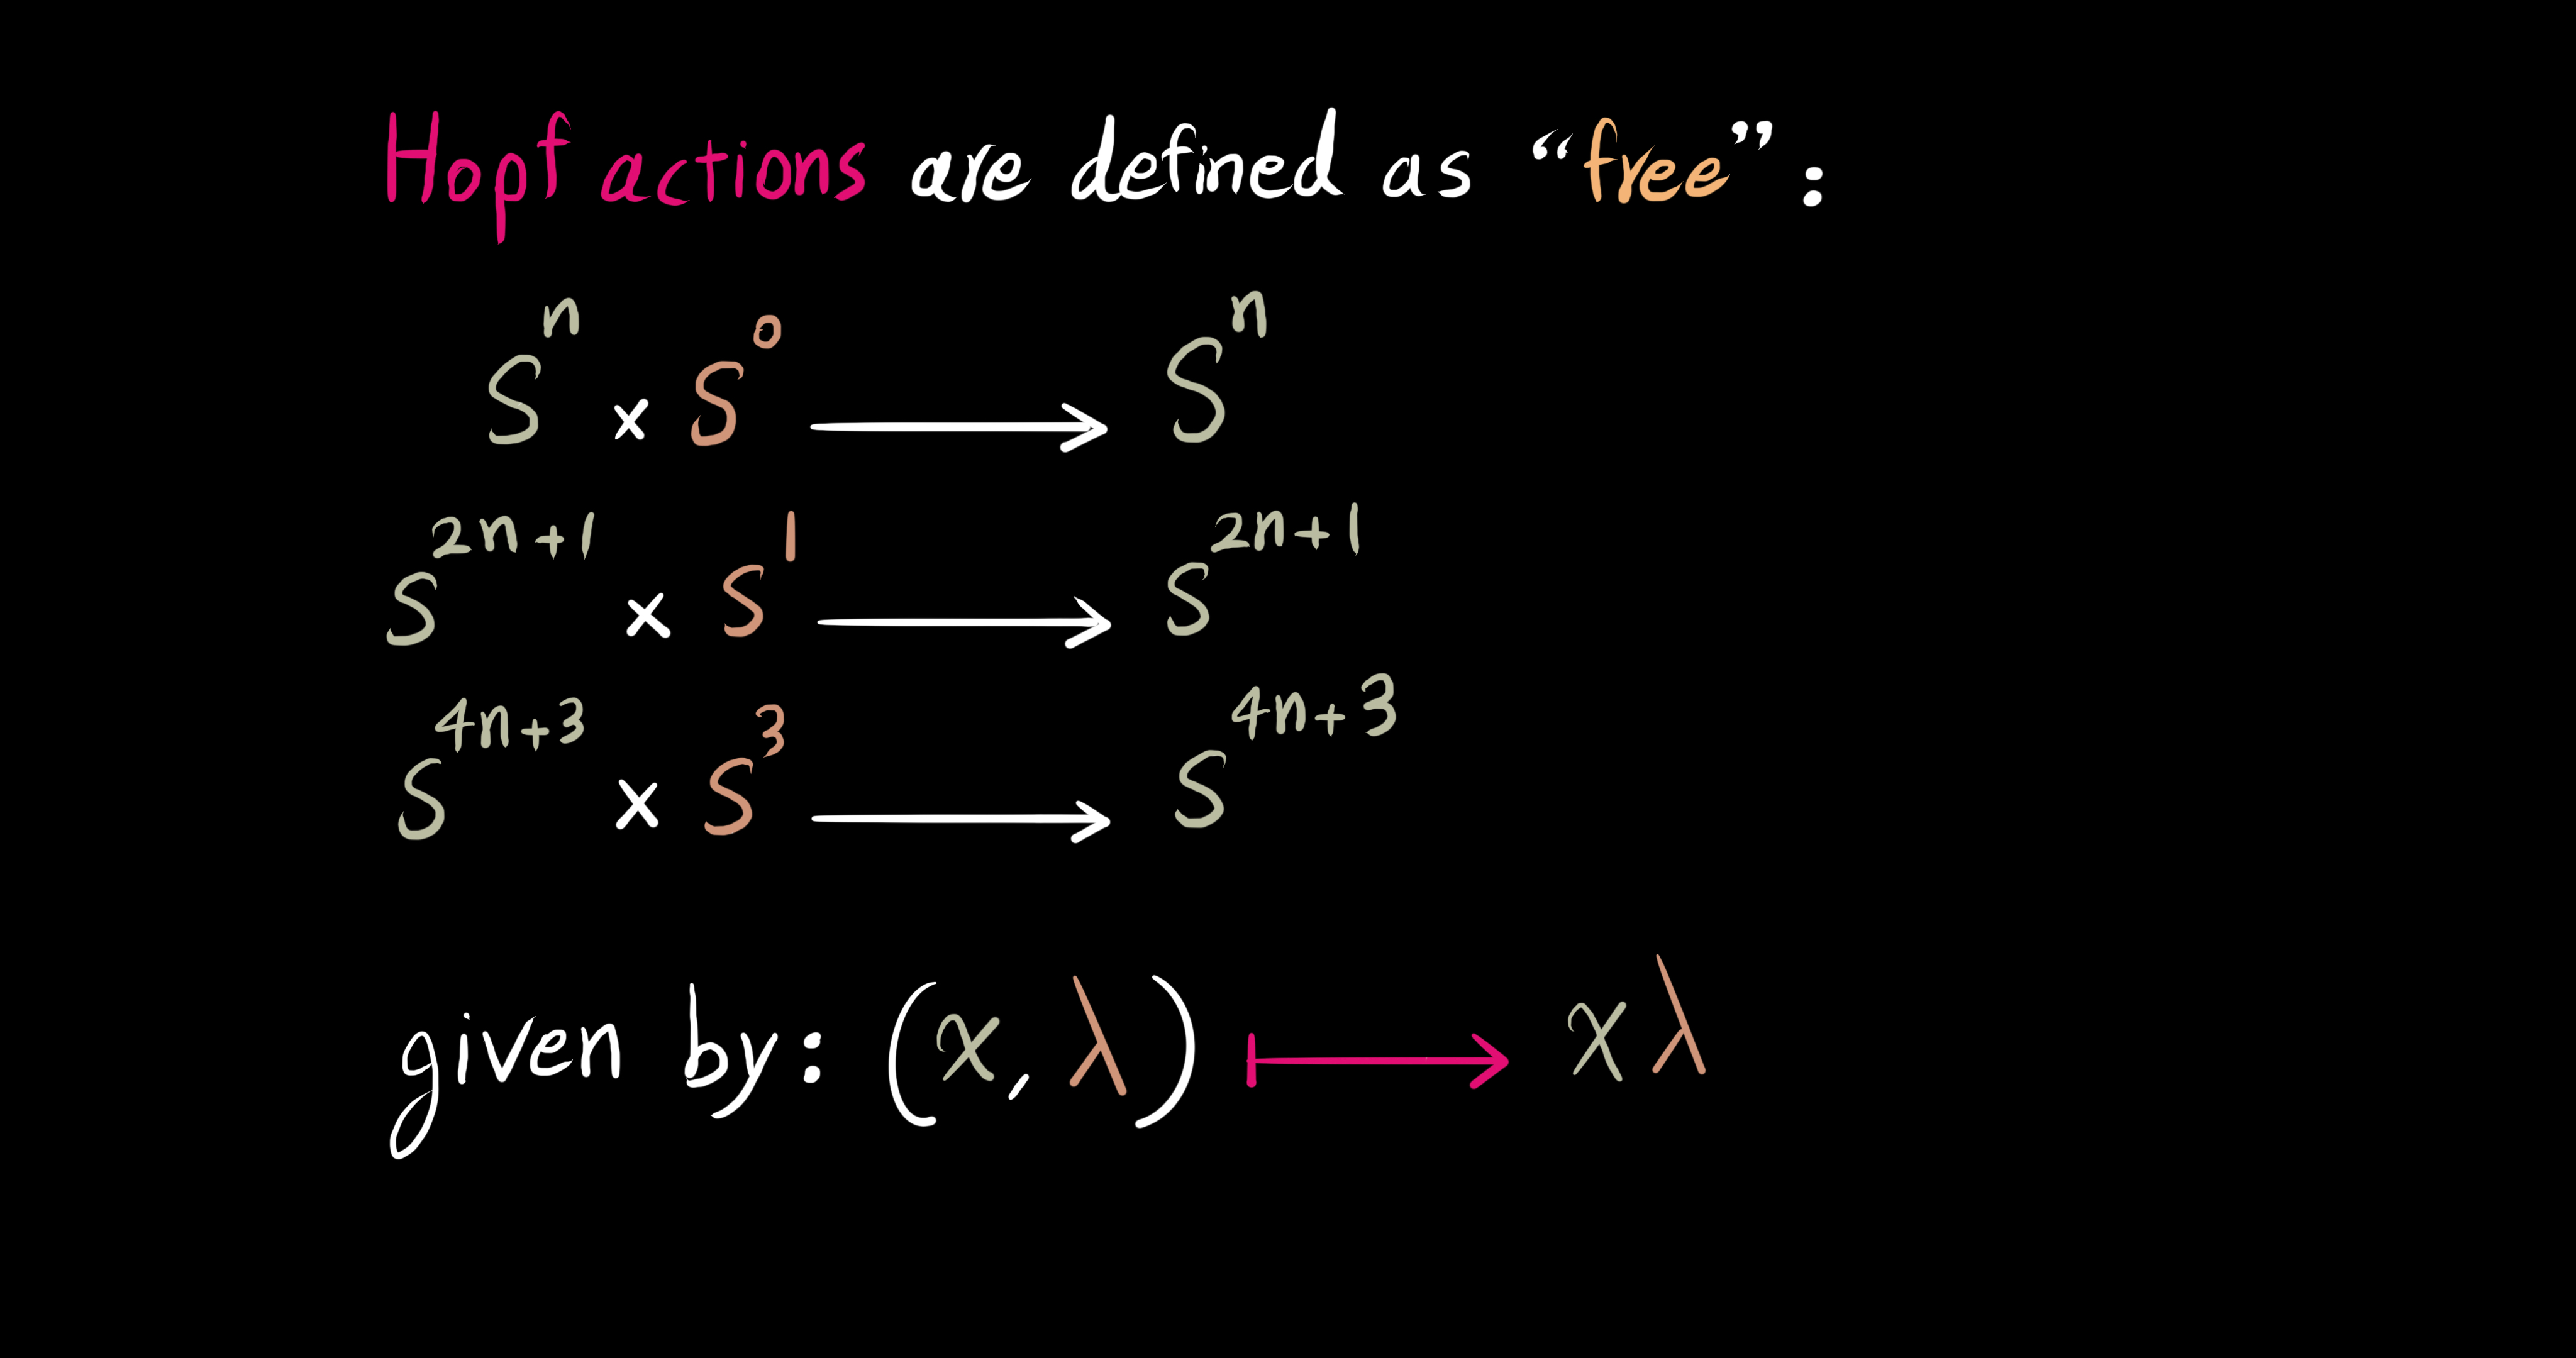 Hopf actions are defined as “free”:
Sⁿ × S⁰ ⟶ Sⁿ
S²ⁿ⁺¹ × S¹ ⟶ S²ⁿ⁺¹
S⁴ⁿ⁺³ × S³ ⟶ S⁴ⁿ⁺³
given by: (x, λ) ⟼ xλ